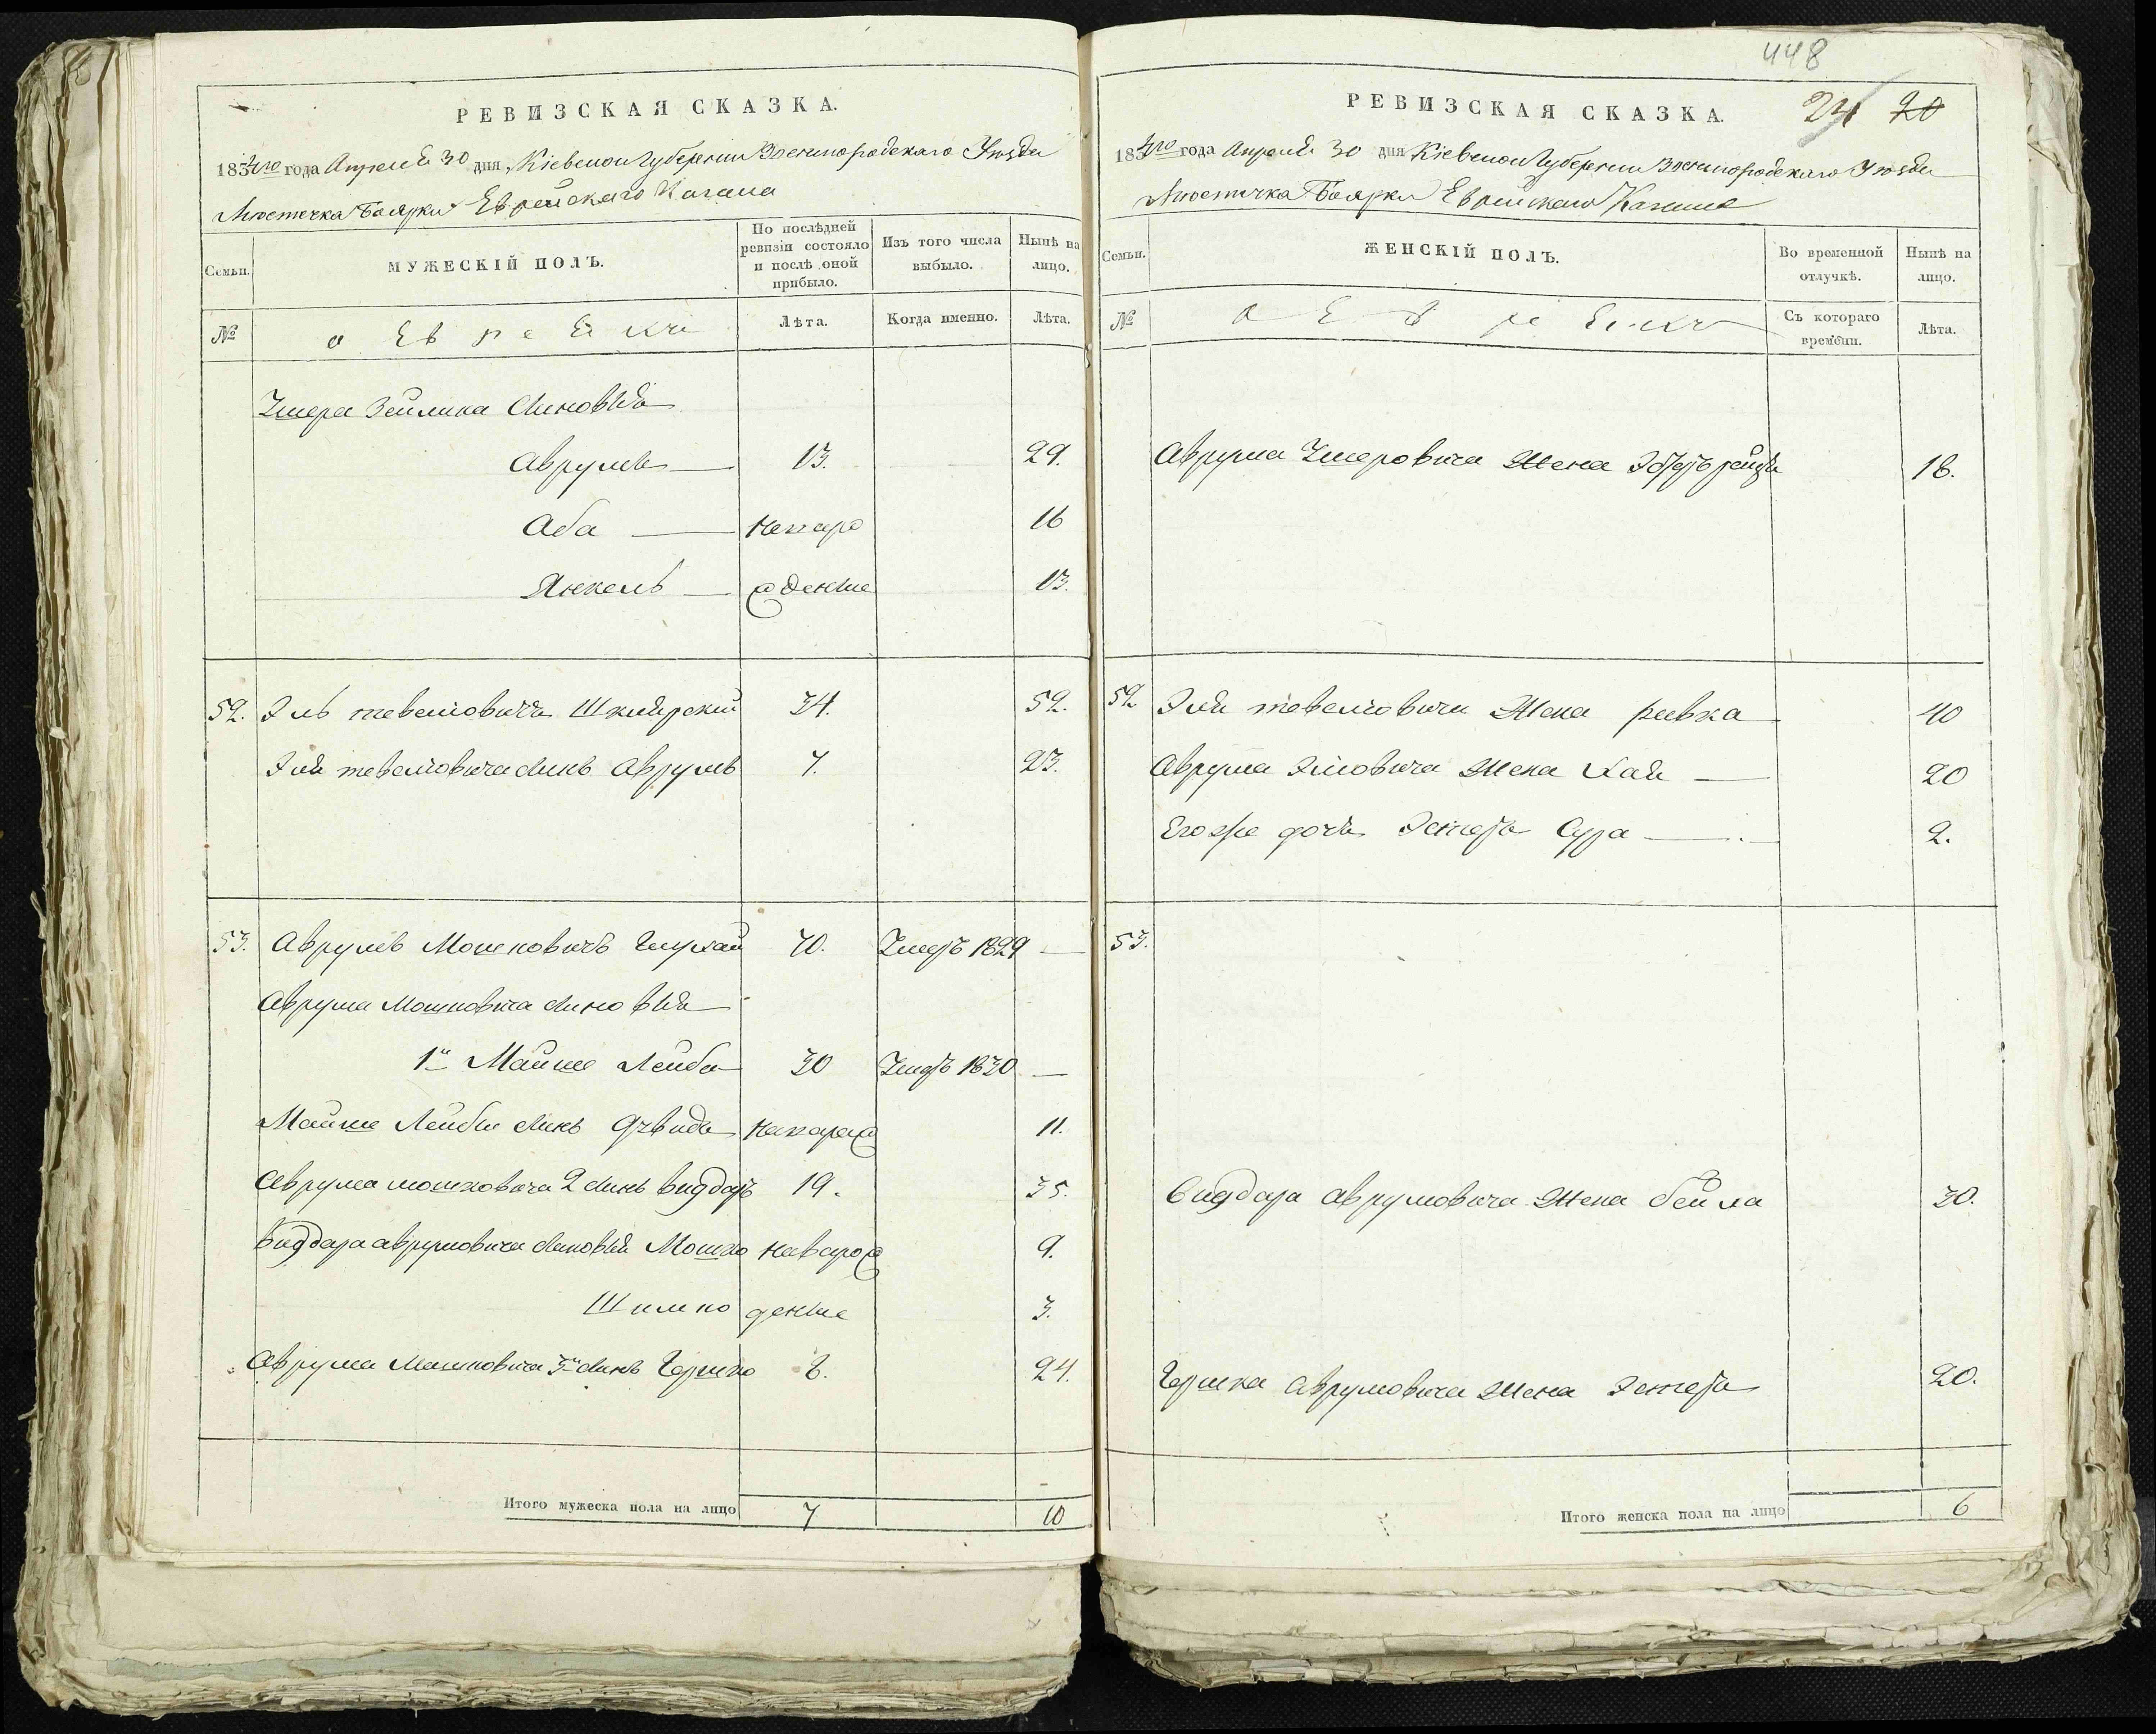 РЕВИЗСКАЯ СКАЗКА.
1834го года Апреля 30 дня Кіевской Губерніи Звенигородскаго Уезда
Мѣстечка Боярки Еврейскаго Кагала
Семьи.
МУЖЕСКІЙ ПОЛЪ.
По послѣдней ревизіи состояло и послѣ оной прибыло.
Изъ того числа выбыло.
Нынѣ на лицо.
№
о Евреяхъ
Лѣта.
Когда именно.
Лѣта.
Умера Зейлика Сыновья
Аврумъ 13. 29.
Аба Новоро 16
Янкель жденные 13.
52. Эль Тевелiовичъ Шклярский 34. 52.
Эля Тевелiовича сынъ Аврумъ 7. 23.
53. Аврумъ Мошковичъ 70. Умеръ 1829 —
Аврума Мошковича сыновья
1й Майше Лейба 30 Умеръ 1830 —
Майше Лейбы сынъ Новорож 11.
Аврума Мошковича 2 сынъ 19. 35.
Аврумовича сыновья Мошко Новорож 9.
Шимко денные 3.
Аврума Машковича 3й сынъ Гершко 8. 24.
Итого мужеска пола на лицо 7 10
448
РЕВИЗСКАЯ СКАЗКА. 24 20
1834го года Апреля 30 дня Кіевской Губерніи Звенигородскаго Уезда
Мѣстечка Боярки Еврейскаго Кагала
Семьи.
ЖЕНСКІЙ ПОЛЪ.
Во временной отлучкѣ.
Нынѣ на лицо.
№
о Еврейкахъ
Съ котораго времени.
Лѣта.
Аврума Умеровича жена 18.
52 Эля Тевелiовича жена Ривка 40
Аврума Элiовича жена Хая 20
Егоже дочь Эстеръ Сура 2.
53.
Аврумовича жена Бейла 30.
Гершка Аврумовича жена Эстеръ 20.
Итого женска пола на лицо 6